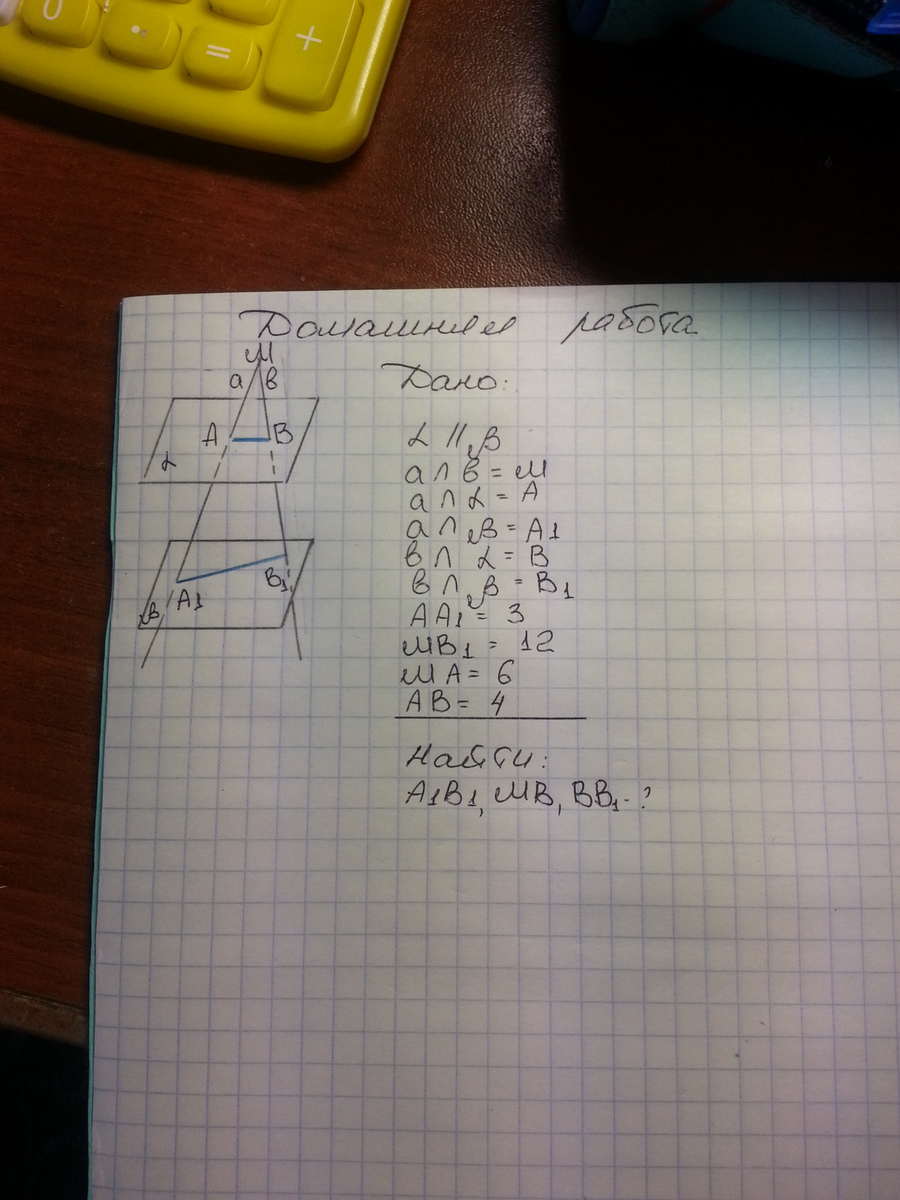 0 . = +
Домашняя работа
M
a в
A B
α
β A1 B1
Дано:
α || β
a ∩ в = M
a ∩ α = A
a ∩ β = A1
в ∩ α = B
в ∩ β = B1
AA1 = 3
MB1 = 12
MA = 6
AB = 4
Найти:
A1B1, MB, BB1 - ?